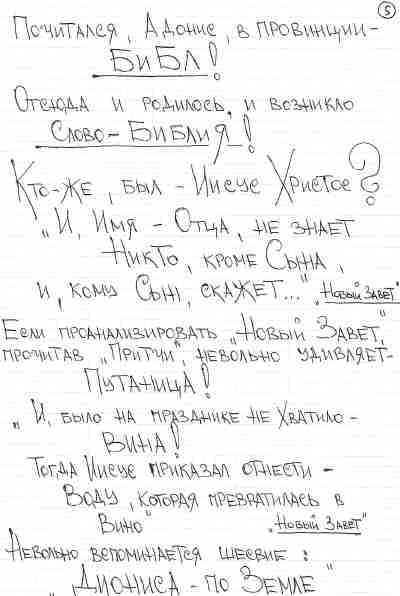 5
Почитался, Адонис, в провинции-
БиБл!
Отсюда и родилось, и возникло
Слово-БиБлиЯ!
Кто-же, был - Иисус Христос?
„И, Имя - Отца, не знает
Никто, кроме Сына,
и, кому Сын, скажет..." „Новый Завет"
Если проанализировать „Новый Завет",
прочитав „Притчи", невольно удивляет-
Путаница!
„И, было на празднике не Хватило-
Вина!
Тогда Иисус приказал отнести -
Воду, которая превратилась в
Вино" „Новый Завет"
Невольно вспоминается шесвие:
„Диониса - по Земле"